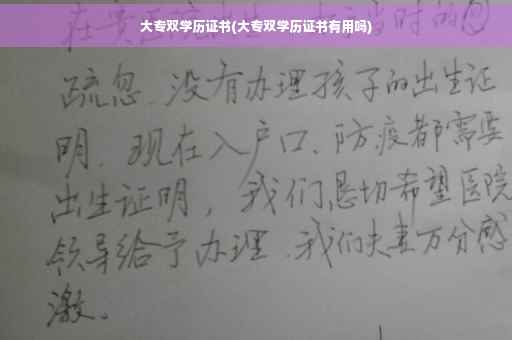 大专双学历证书(大专双学历证书有用吗)
在 当时的
疏忽、没有办理孩子的出生证
明。现在入户口、防疫都需要
出生证明，我们恳切希望医院
领导给予办理、我们夫妻万分感
激。